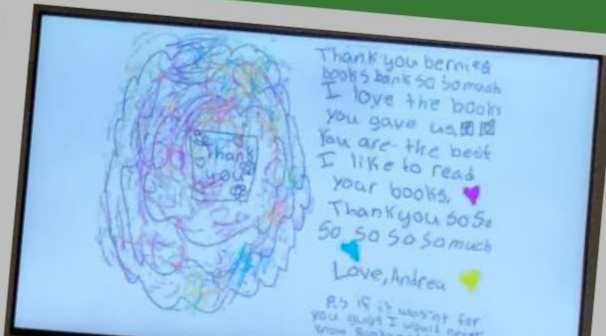 Thank
you
Thank you bernies
books bank so so much
I love the books
you gave us
You are the best
I like to read
your books.
Thank you so so
so so so so much
Love, Andrea
P.s if it wasn't for
you guys I would never
know